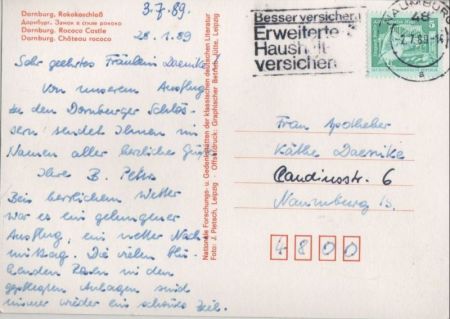 Dornburg, Rokokoschloß
Дорнбург. Замок в стиле рококо
Dornburg. Rococo Castle
Dornburg. Château rococo
3.7.89.
28.1.89
Sehr geehrtes Fräulein Daenike!
Von unserem Ausflug
zu den Dornburger Schlös-
sern sendet Ihnen im
Namen aller herzliche Grüße
Ihre B. Peters
Bei herrlichem Wetter
war es ein gelungener
Ausflug, ein netter Nach-
mittag. Die vielen blü-
henden Rosen in den
gepflegten Anlagen sind
immer wieder ein schönes Ziel.
Nationale Forschungs- u. Gedenkstätten der klassischen deutschen Literatur
Foto: J. Pietsch, Leipzig · Offsetdruck: Graphischer Betrieb Jütte, Leipzig
Besser versichern
Erweiterte
Haushalt-
versicherung
NAUMBURG
48
-7.7.89-14
a
5
Frau Apotheker
Käthe Daenike
Claudiusstr. 6
Naumburg/S.
4800